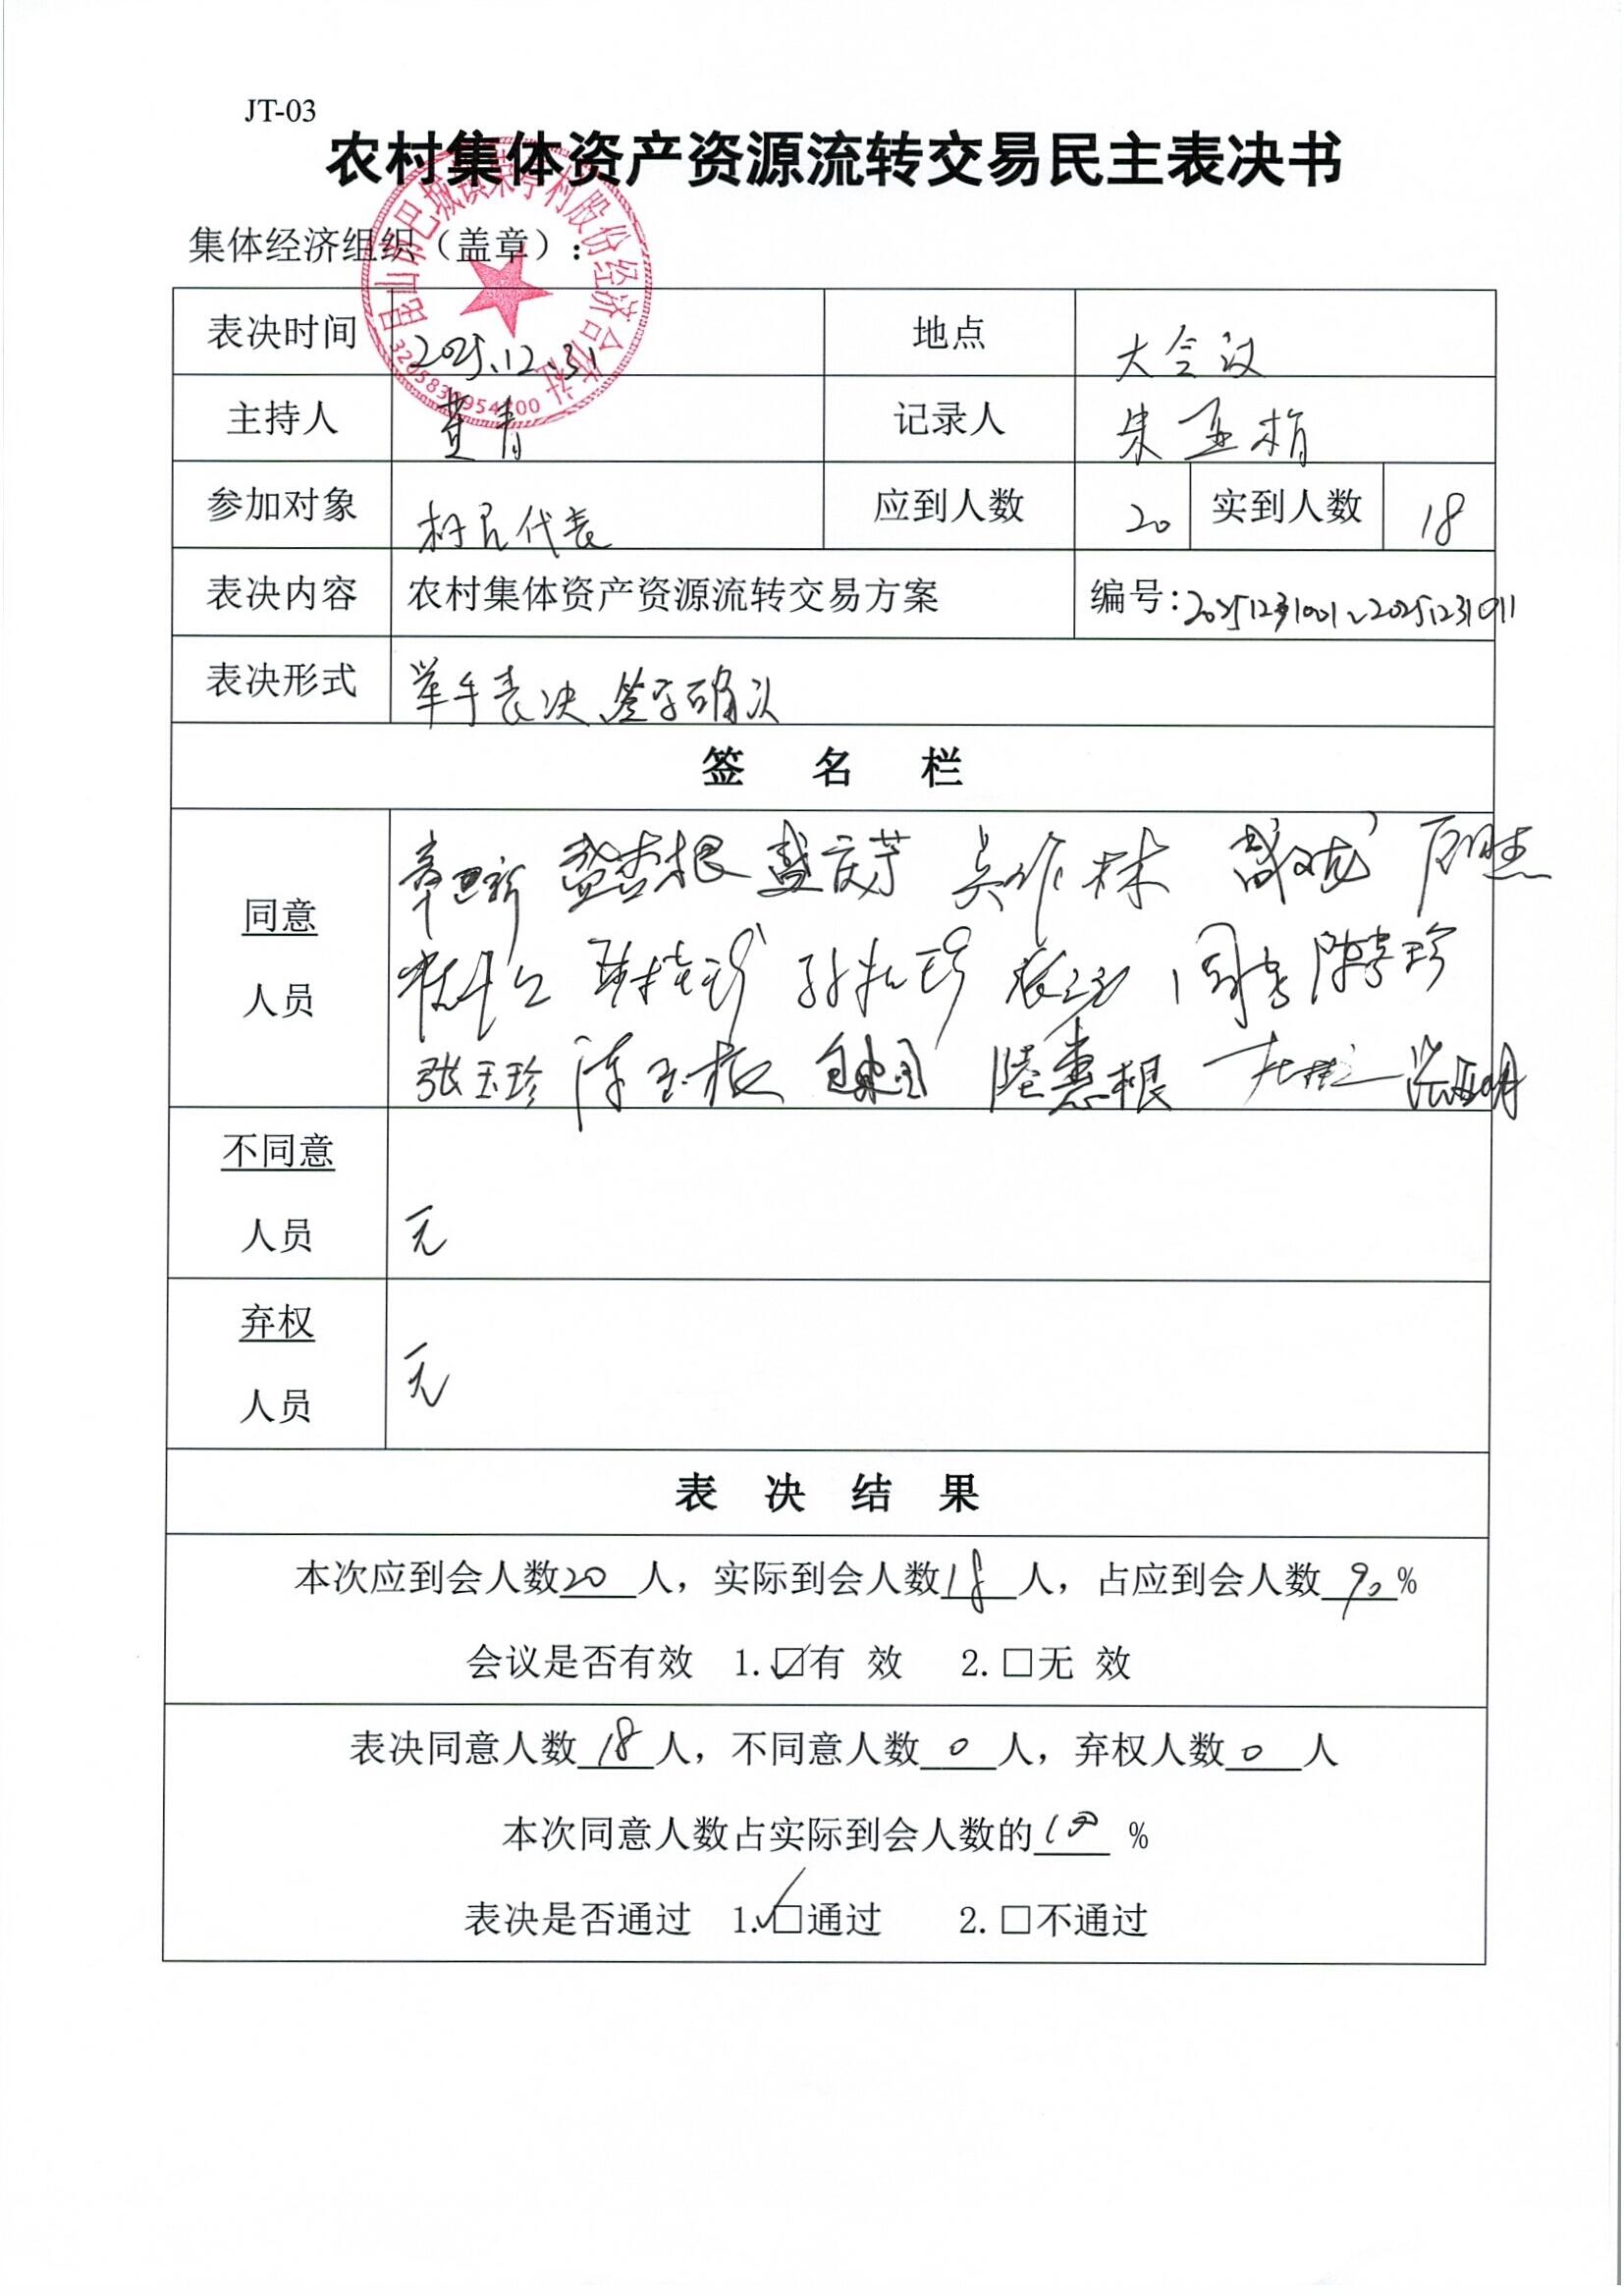 JT-03
农村集体资产资源流转交易民主表决书
集体经济组织（盖章）：
昆山市巴城镇 村股份经济合作社
表决时间 2025.12.31 地点 大会议
主持人 黄青 记录人 朱
参加对象 村民代表 应到人数 20 实到人数 18
表决内容 农村集体资产资源流转交易方案 编号：20251231001、20251231011
表决形式 举手表决、签字确认
签 名 栏
同意
人员
盛杏根 盛庆芳 吴 林
陈 珍
张玉珍 陈玉 陆惠根
不同意
人员 无
弃权
人员 无
表 决 结 果
本次应到会人数20人，实际到会人数18人，占应到会人数90%
会议是否有效 1.☑有 效 2.□无 效
表决同意人数18人，不同意人数0人，弃权人数0人
本次同意人数占实际到会人数的100 %
表决是否通过 1.☑通过 2.□不通过